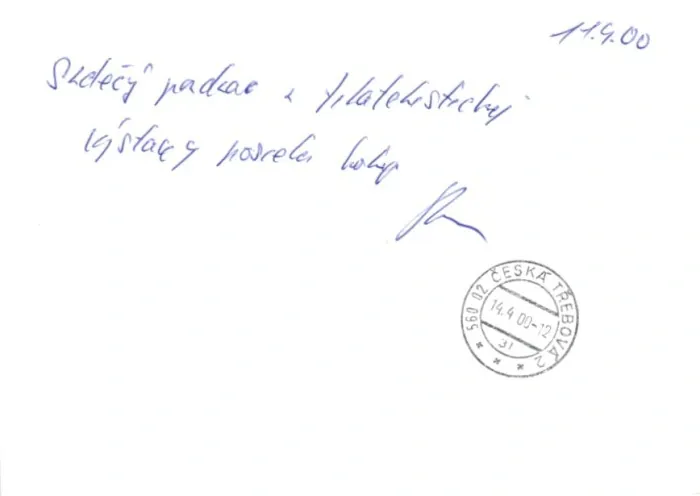 11.4.00
Srdečý pozdrav z filatelistickej
výstavy posiela
560 02 ČESKÁ TŘEBOVÁ 2
14.4.00-12
31